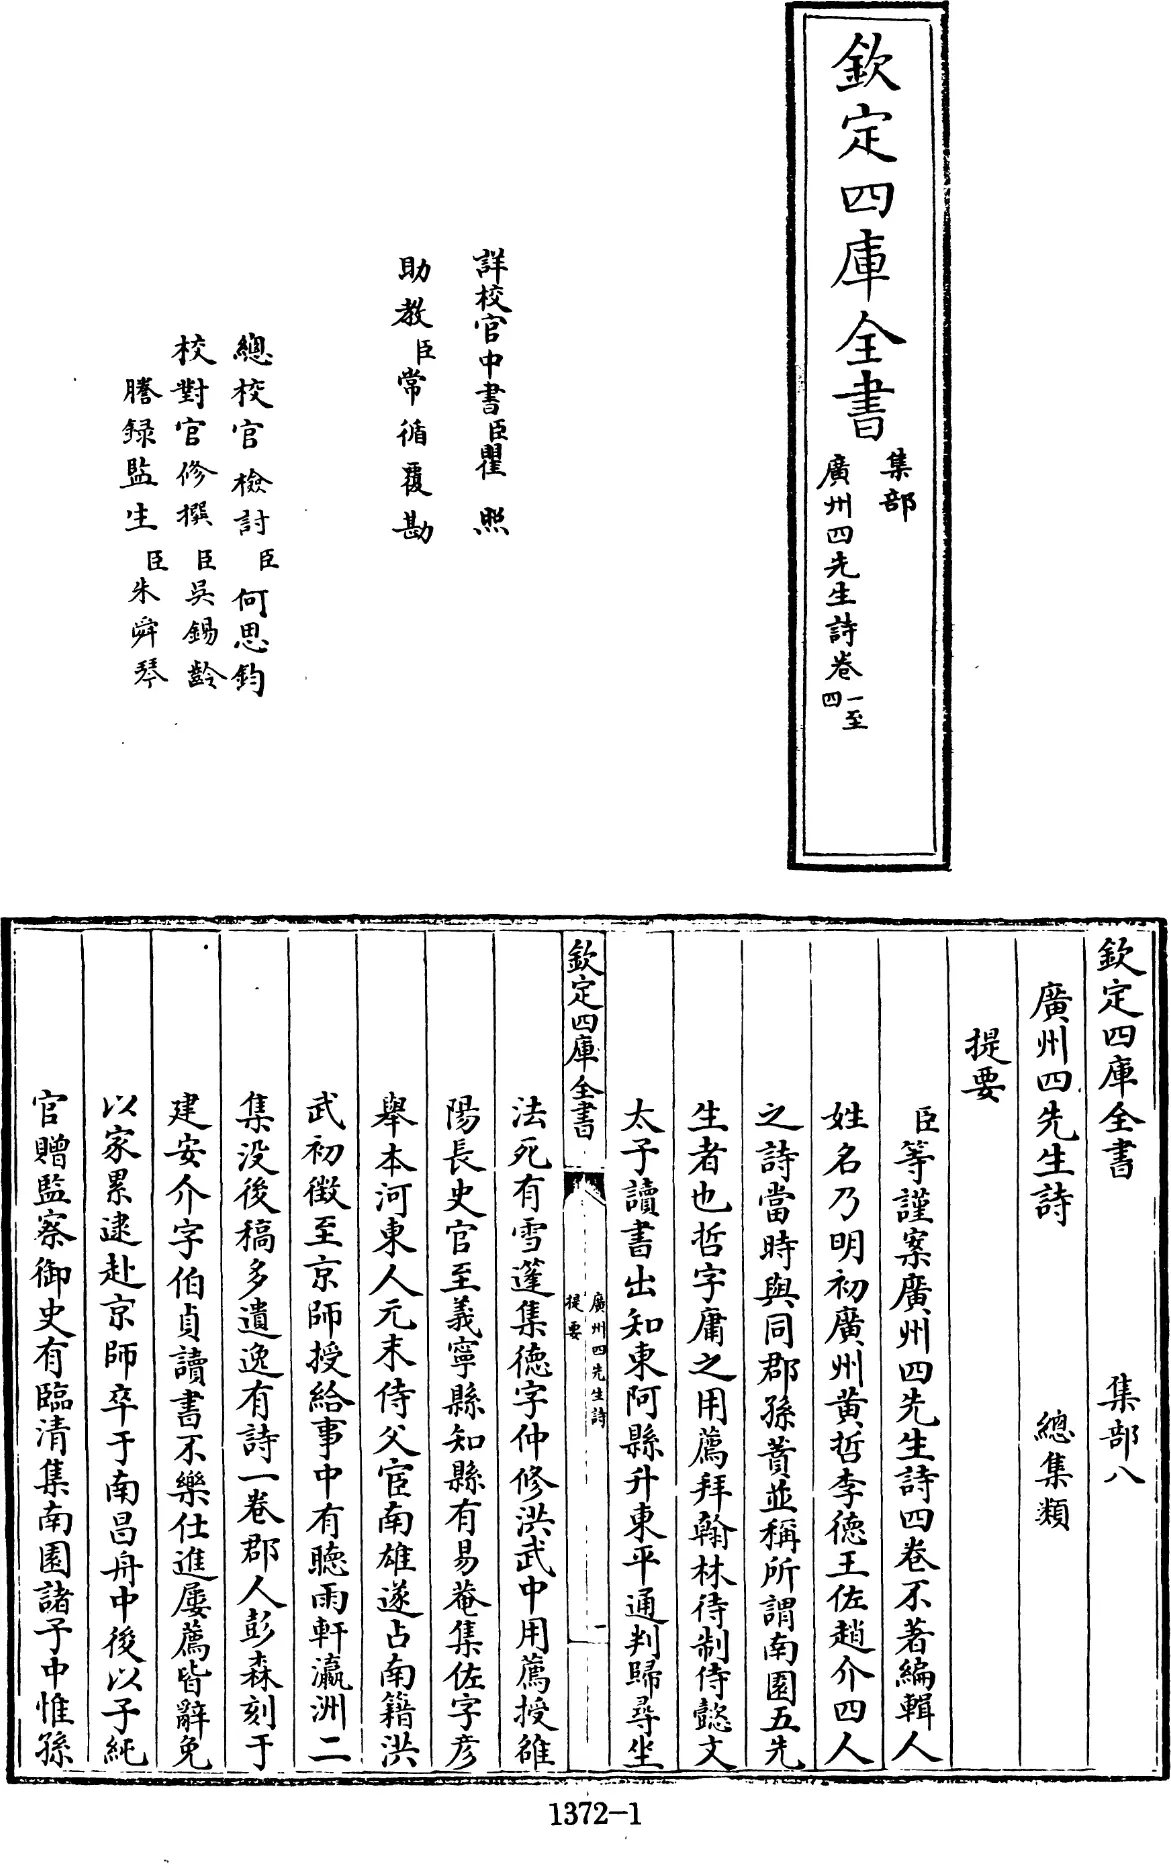 欽定四庫全書
集部
廣州四先生詩卷一至四
詳校官中書臣瞿照
助教臣常循覆勘
總校官檢討臣何思鈞
校對官修撰臣吳錫齡
謄錄監生臣朱舜琴
欽定四庫全書 集部八
廣州四先生詩 總集類
提要
臣等謹案廣州四先生詩四卷不著編輯人
姓名乃明初廣州黃哲李德王佐趙介四人
之詩當時與同郡孫蕡並稱所謂南園五先
生者也哲字庸之用薦拜翰林待制侍懿文
太子讀書出知東阿縣升東平通判歸尋坐
欽定四庫全書
廣州四先生詩
提要
一
法死有雪蓬集德字仲修洪武中用薦授雒
陽長史官至義寧縣知縣有易菴集佐字彥
舉本河東人元末侍父宦南雄遂占南籍洪
武初徵至京師授給事中有聽雨軒瀛洲二
集没後稿多遺逸有詩一卷郡人彭森刻于
建安介字伯貞讀書不樂仕進屢薦皆辭免
以家累逮赴京師卒于南昌舟中後以子純
官贈監察御史有臨清集南園諸子中惟孫
1372-1